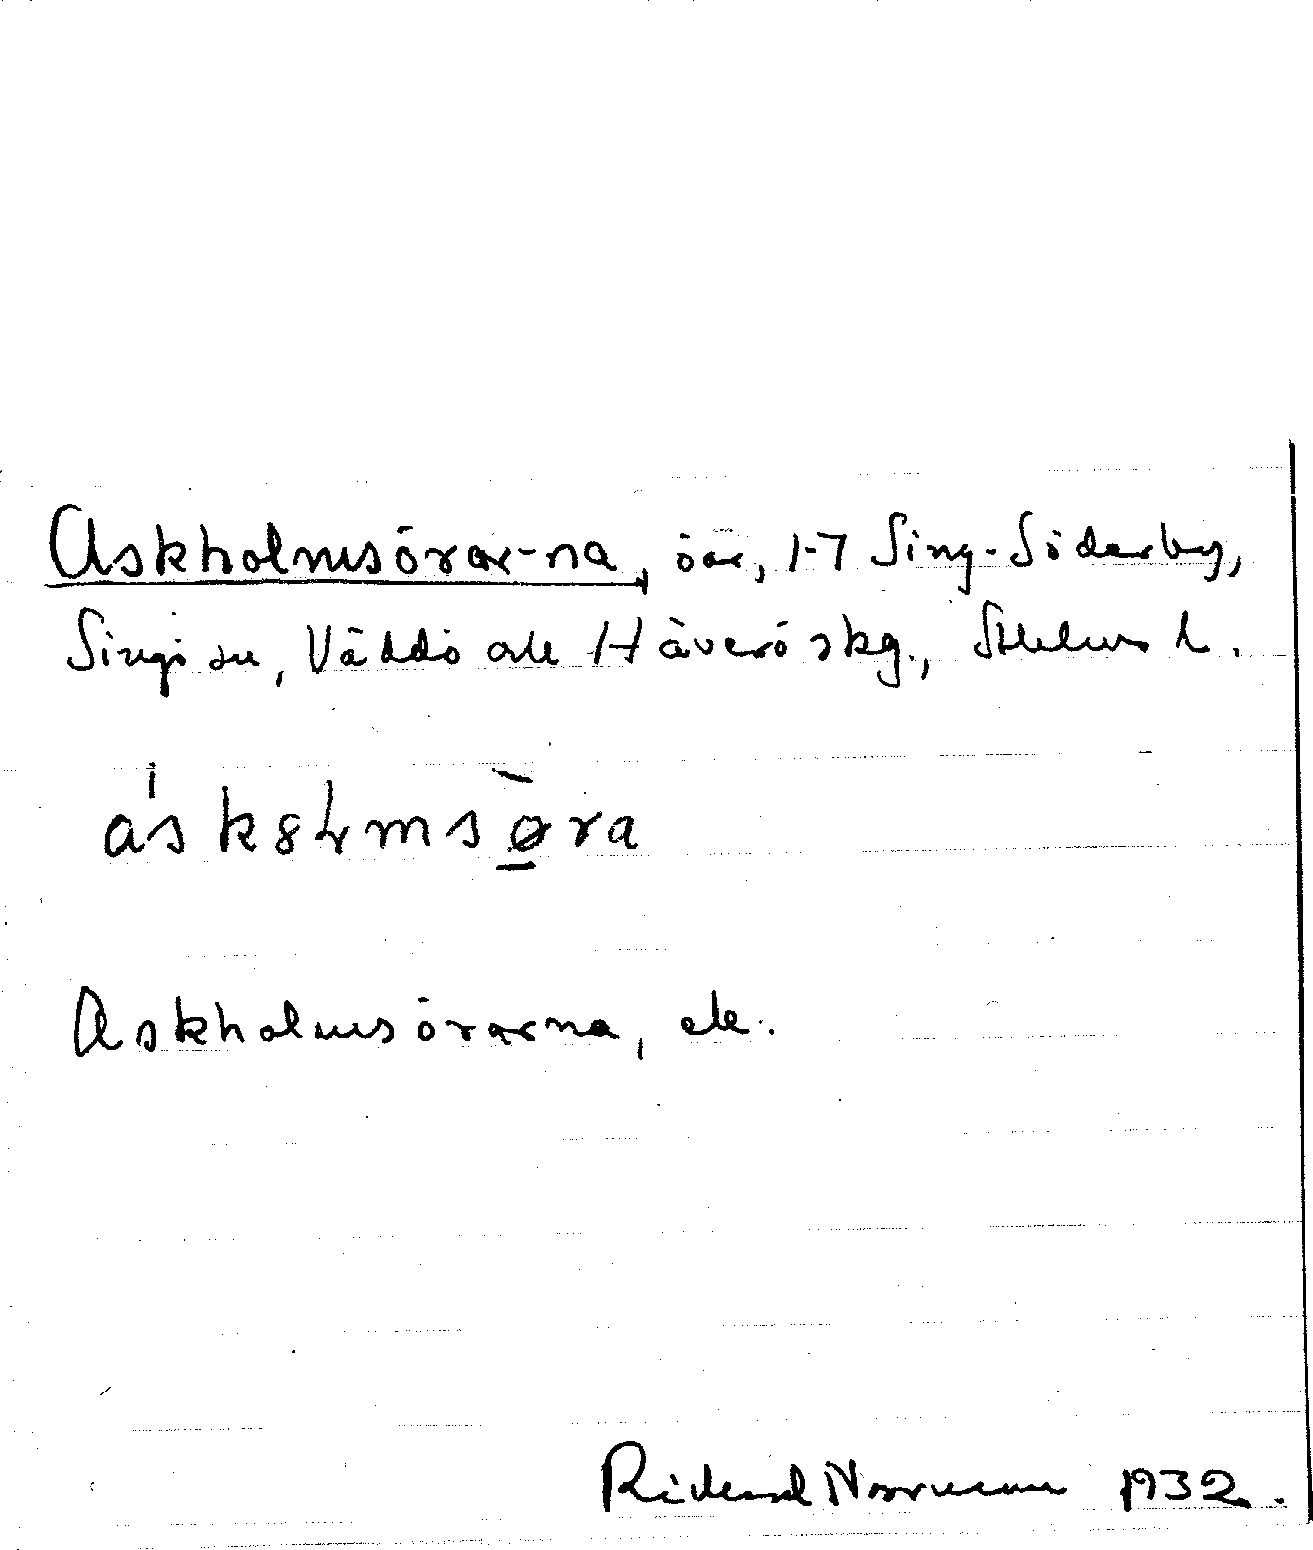 Askholmsörar-na, öar, 1-7 Sing-Söderby,
Singö sn, Väddö o Häverö skg., Sthlms l.
áskȣlmsø̱̀ra
Askholmsörarna, ek.
Rickard Norrman 1932.